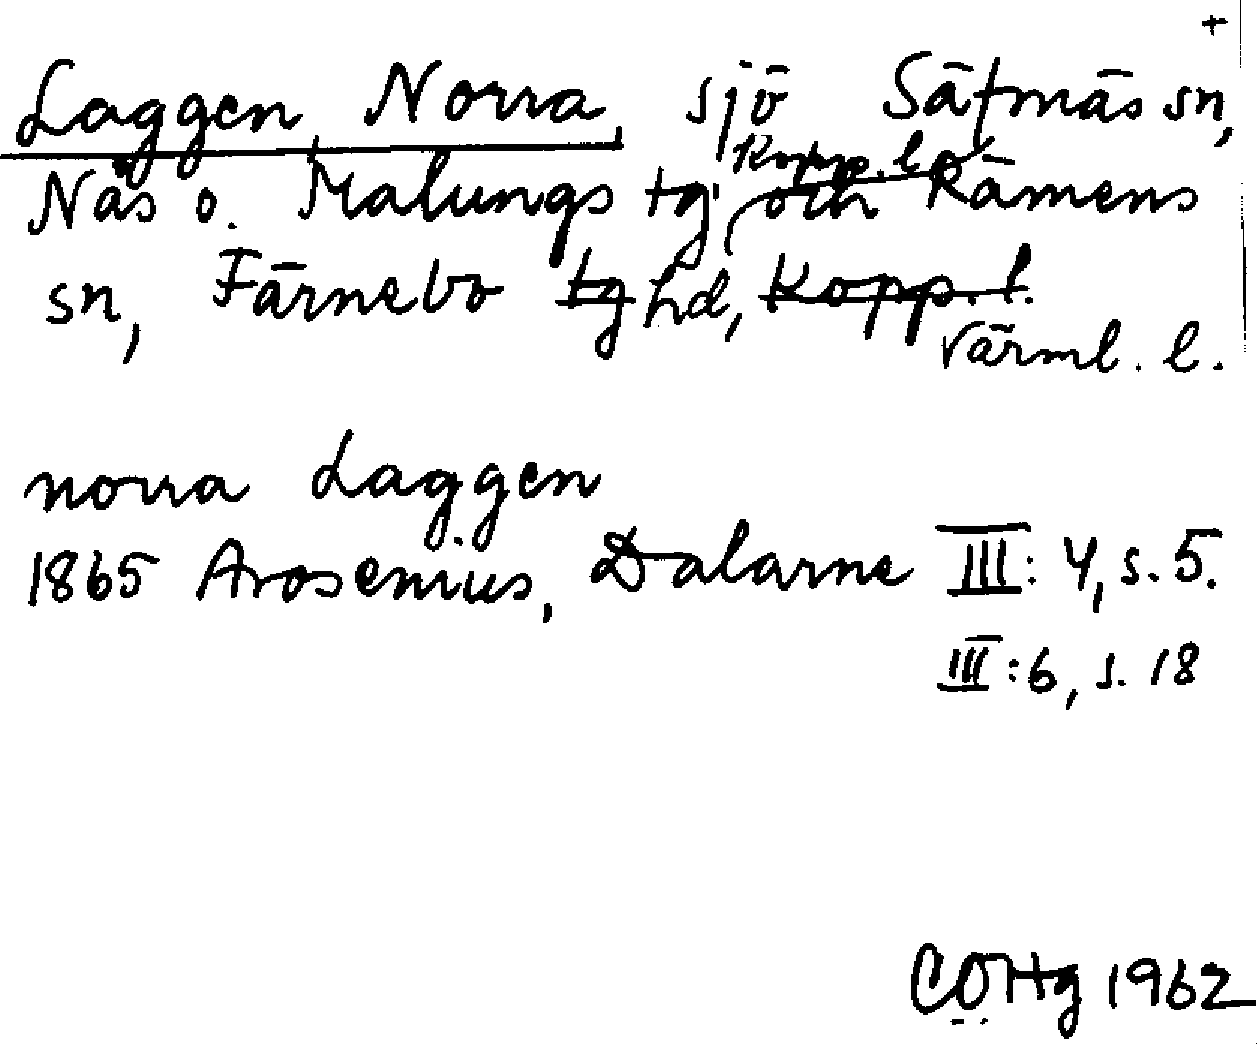 +
Laggen, Norra, sjö Säfsnäs sn,
Kopp. l. o.
Näs o. Malungs tg, och Rämens
sn, Färnebo tg hd, Kopp. l.
Värml. l.
norra Laggen
1865 Arosenius, Dalarne III: 4, s. 5.
III:6, s. 18
COHg 1962